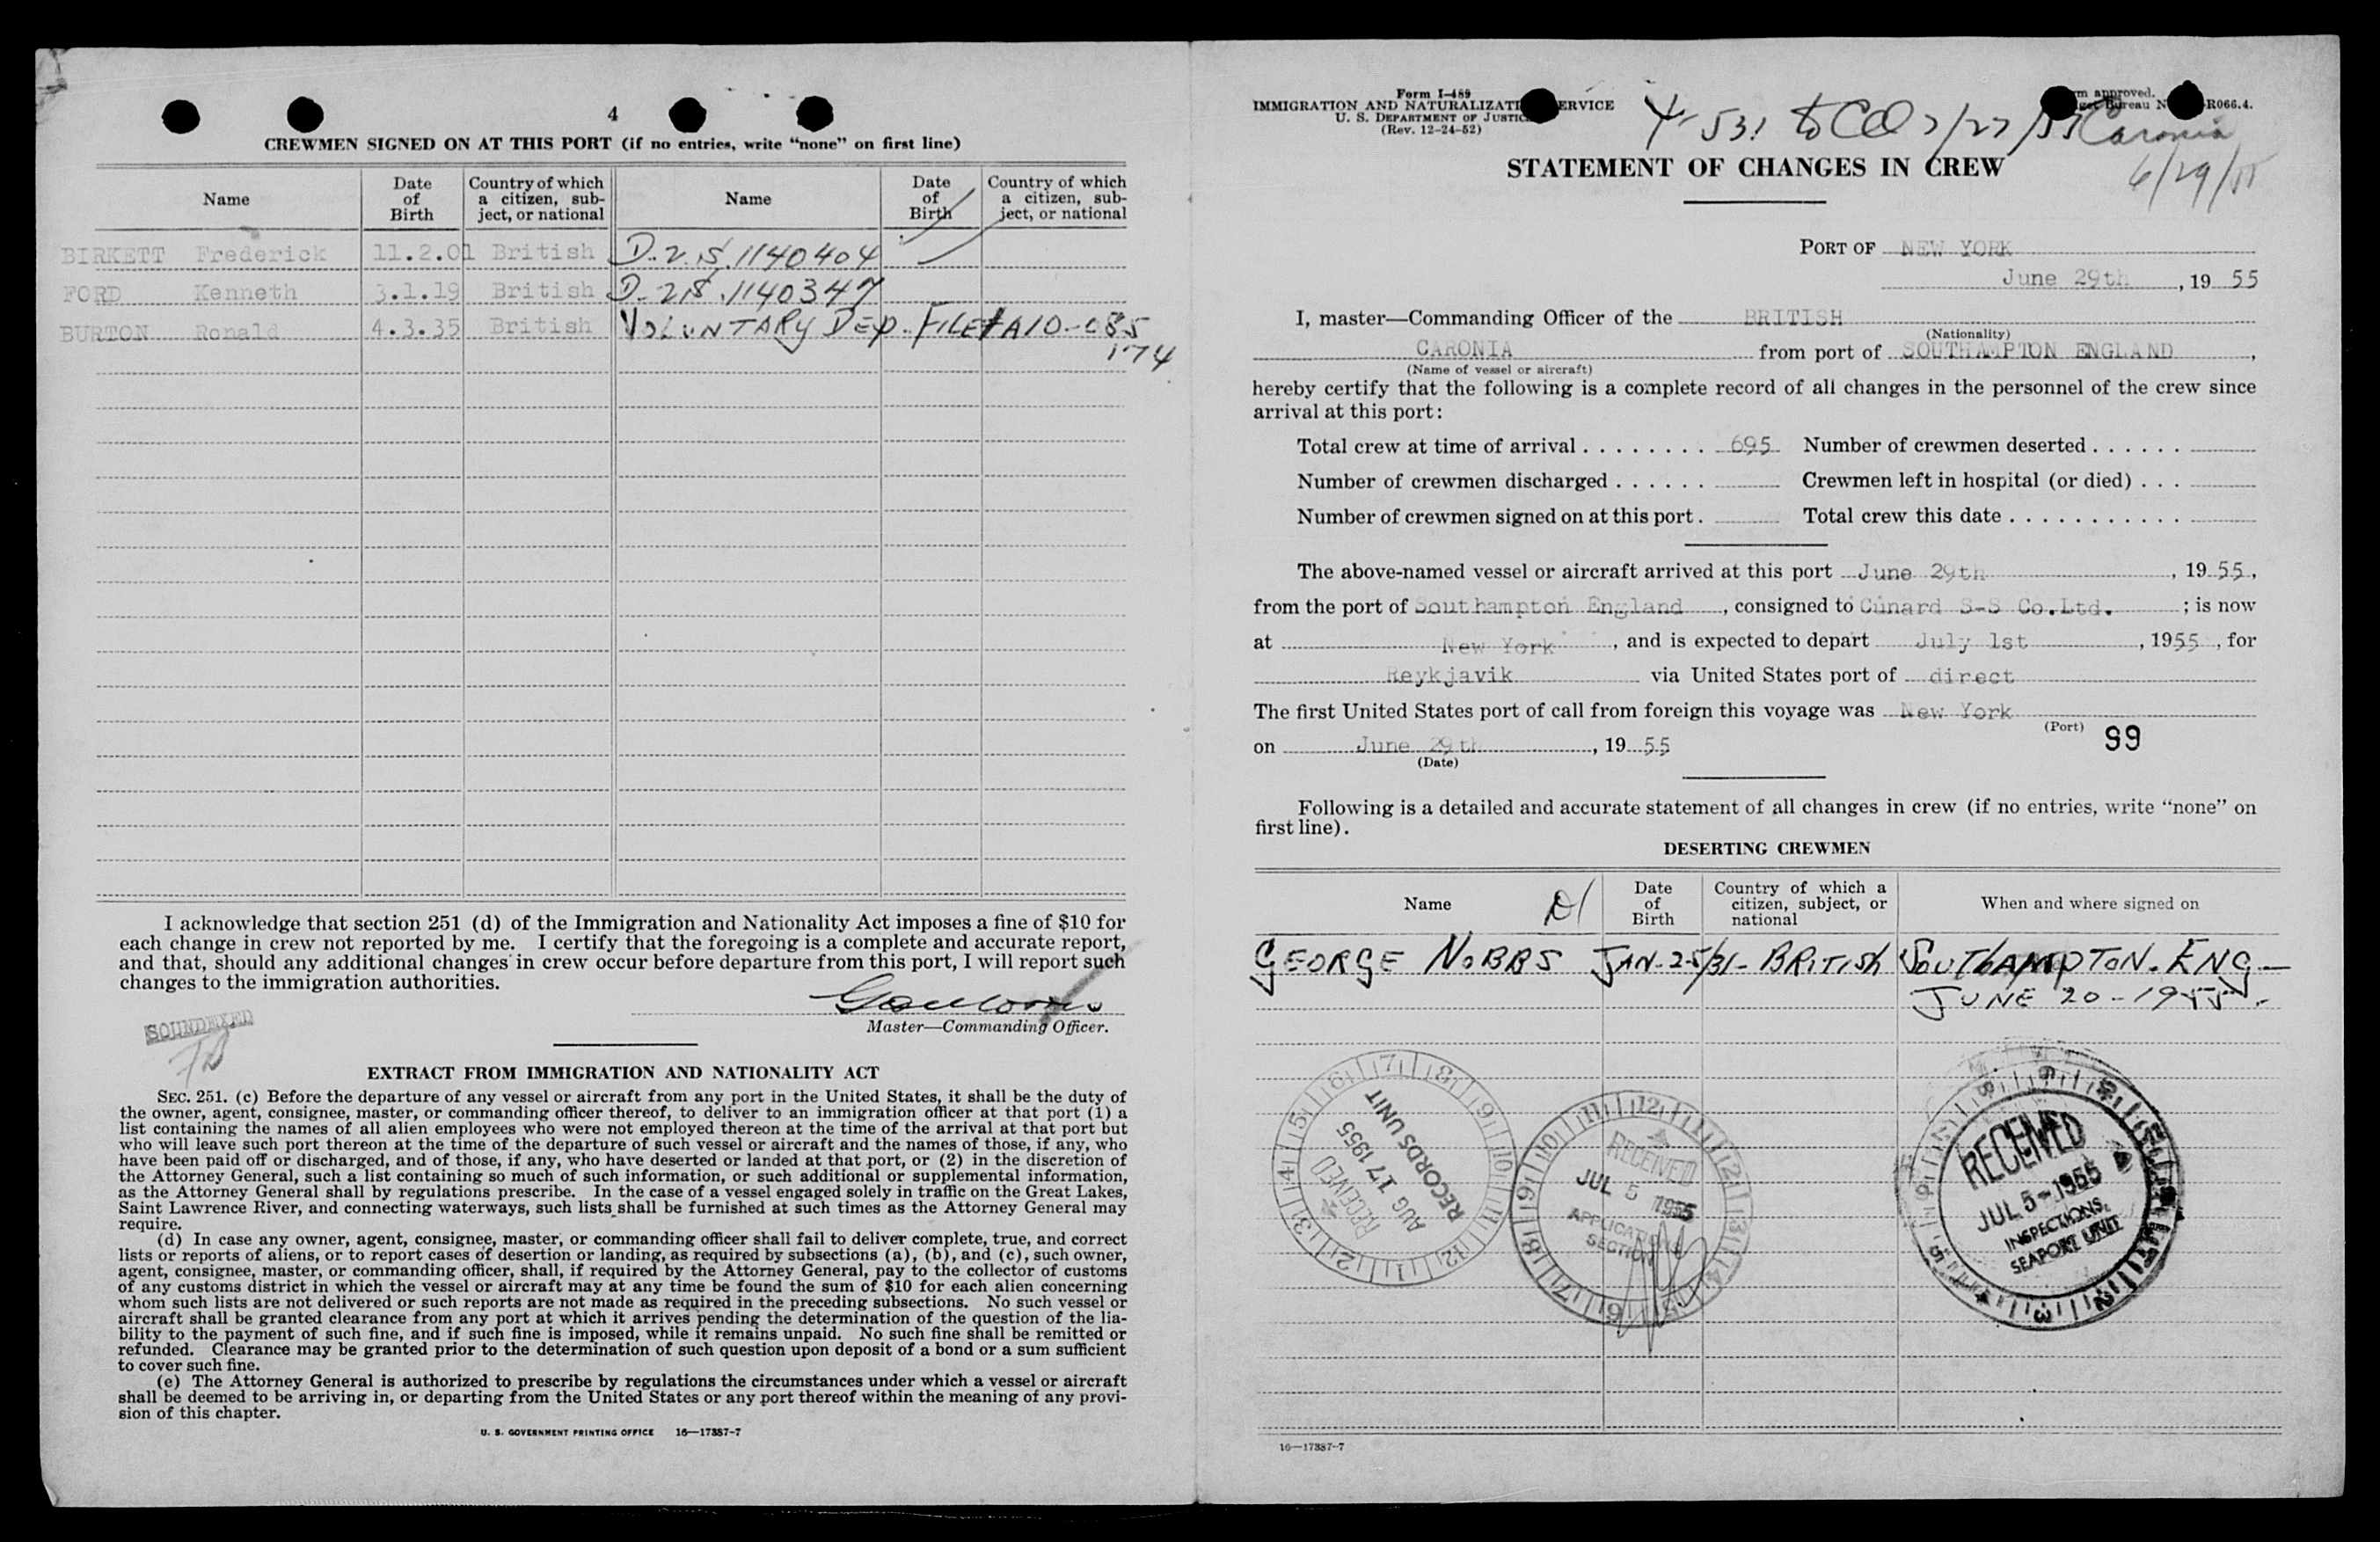 4
CREWMEN SIGNED ON AT THIS PORT (if no entries, write "none" on first line)
Name Date of Birth Country of which a citizen, subject, or national Name Date of Birth Country of which a citizen, subject, or national
BIRKETT Frederick 11.2.01 British D.2.S.1140404
FORD Kenneth 3.1.19 British D-2S.1140347
BURTON Ronald 4.3.35 British VOLUNTARY DEP. FILE# A10-085
174
I acknowledge that section 251 (d) of the Immigration and Nationality Act imposes a fine of $10 for
each change in crew not reported by me. I certify that the foregoing is a complete and accurate report,
and that, should any additional changes in crew occur before departure from this port, I will report such
changes to the immigration authorities.
Master—Commanding Officer.
SOUNDEXED
EXTRACT FROM IMMIGRATION AND NATIONALITY ACT
SEC. 251. (c) Before the departure of any vessel or aircraft from any port in the United States, it shall be the duty of
the owner, agent, consignee, master, or commanding officer thereof, to deliver to an immigration officer at that port (1) a
list containing the names of all alien employees who were not employed thereon at the time of the arrival at that port but
who will leave such port thereon at the time of the departure of such vessel or aircraft and the names of those, if any, who
have been paid off or discharged, and of those, if any, who have deserted or landed at that port, or (2) in the discretion of
the Attorney General, such a list containing so much of such information, or such additional or supplemental information,
as the Attorney General shall by regulations prescribe. In the case of a vessel engaged solely in traffic on the Great Lakes,
Saint Lawrence River, and connecting waterways, such lists shall be furnished at such times as the Attorney General may
require.
(d) In case any owner, agent, consignee, master, or commanding officer shall fail to deliver complete, true, and correct
lists or reports of aliens, or to report cases of desertion or landing, as required by subsections (a), (b), and (c), such owner,
agent, consignee, master, or commanding officer, shall, if required by the Attorney General, pay to the collector of customs
of any customs district in which the vessel or aircraft may at any time be found the sum of $10 for each alien concerning
whom such lists are not delivered or such reports are not made as required in the preceding subsections. No such vessel or
aircraft shall be granted clearance from any port at which it arrives pending the determination of the question of the lia-
bility to the payment of such fine, and if such fine is imposed, while it remains unpaid. No such fine shall be remitted or
refunded. Clearance may be granted prior to the determination of such question upon deposit of a bond or a sum sufficient
to cover such fine.
(e) The Attorney General is authorized to prescribe by regulations the circumstances under which a vessel or aircraft
shall be deemed to be arriving in, or departing from the United States or any port thereof within the meaning of any provi-
sion of this chapter.
U. S. GOVERNMENT PRINTING OFFICE 16—17387-7
Form I-489
IMMIGRATION AND NATURALIZATI ERVICE
U. S. DEPARTMENT OF JUSTIC
(Rev. 12-24-52)
approved.
Bureau N R066.4.
531 to CO 7/27/55 Caronia
6/29/55
STATEMENT OF CHANGES IN CREW
PORT OF NEW YORK
June 29th, 1955
I, master—Commanding Officer of the BRITISH
(Nationality)
CARONIA from port of SOUTHAMPTON ENGLAND,
(Name of vessel or aircraft)
hereby certify that the following is a complete record of all changes in the personnel of the crew since
arrival at this port:
Total crew at time of arrival . . . . . . . . 695 Number of crewmen deserted . . . . . .
Number of crewmen discharged . . . . . . Crewmen left in hospital (or died) . . .
Number of crewmen signed on at this port . Total crew this date . . . . . . . . . . .
The above-named vessel or aircraft arrived at this port June 29th, 1955,
from the port of Southampton England, consigned to Cunard S-S Co.Ltd. ; is now
at New York, and is expected to depart July 1st, 1955, for
Reykjavik via United States port of direct
The first United States port of call from foreign this voyage was New York
(Port) 99
on June 29th, 1955
(Date)
Following is a detailed and accurate statement of all changes in crew (if no entries, write "none" on
first line).
DESERTING CREWMEN
Name Date of Birth Country of which a citizen, subject, or national When and where signed on
GEORGE NOBBS JAN-25/31- BRITISH SOUTHAMPTON. ENG-
JUNE 20-1955.
RECEIVED
AUG 17 1955
RECORDS UNIT
RECEIVED
JUL 5 1955
APPLICATIONS
SECTION
RECEIVED
JUL 5-1955
INSPECTIONS,
SEAPORT UNIT
16—17387-7